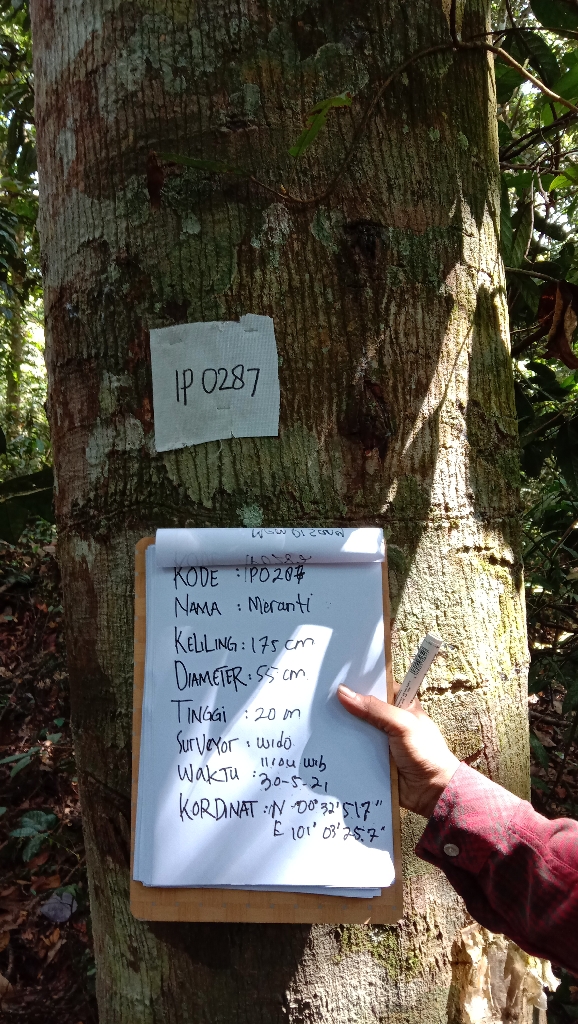 IP 0287
KODE : IP0287
NAMA : Meranti
KELILING : 175 cm
DIAMETER : 55 cm
TINGGI : 20 m
SURVEYOR : wido
WAKTU : wib
30-5-21
KORDINAT : N 00° 32' 51.7"
E 101° 03' 25.7"